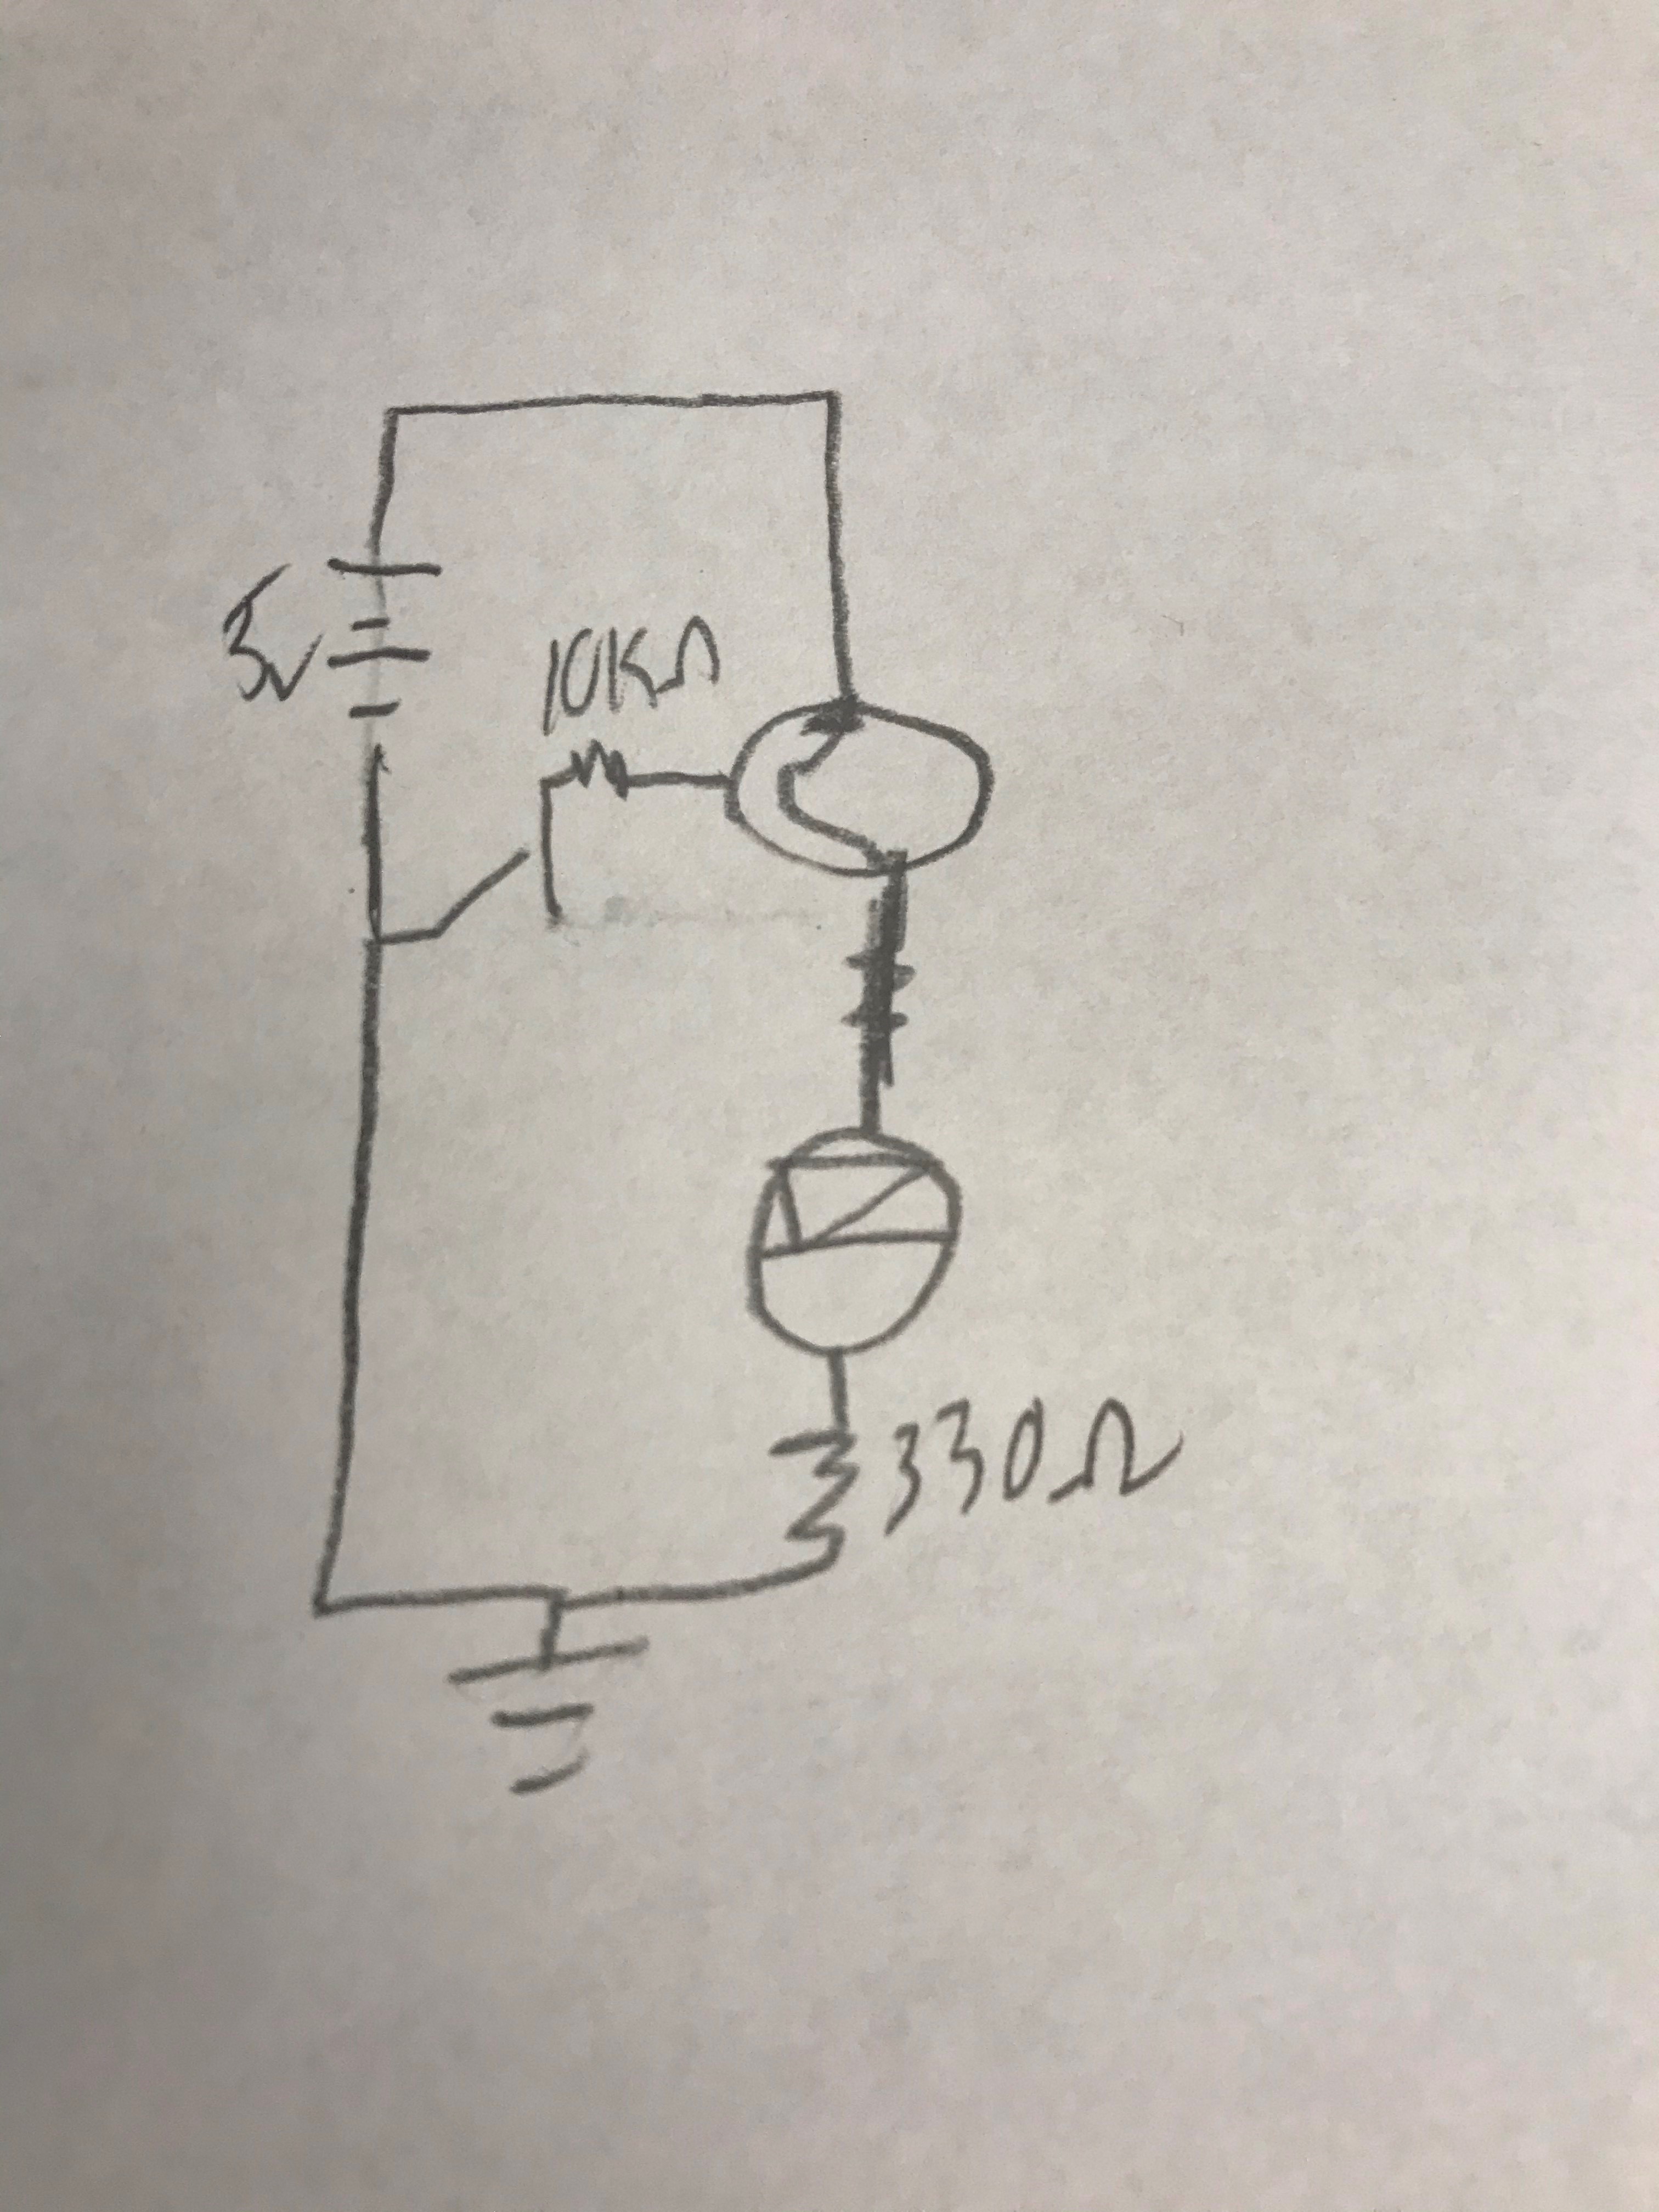 3v
10KΩ
330Ω